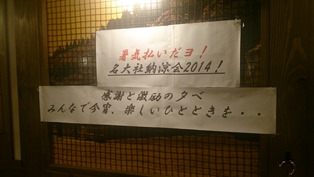 暑気払いだヨ！
名大社納涼会2014！
感謝と激励の夕べ
みんなで今宵、楽しいひとときを・・